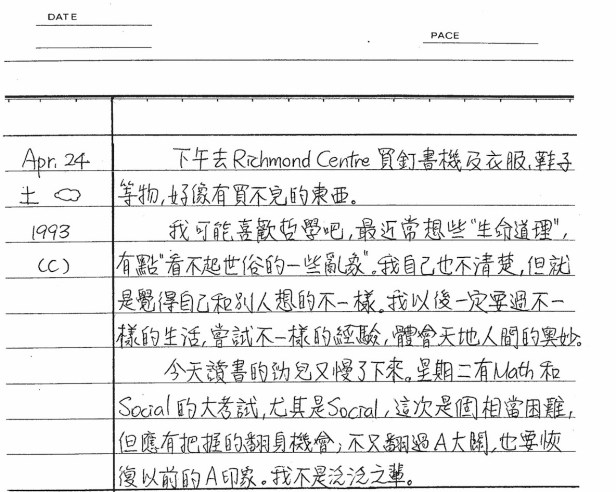 DATE
PACE
Apr. 24 下午去Richmond Centre 買釘書機及衣服, 鞋子
土 等物, 好像有買不完的東西。
1993 我可能喜歡哲學吧, 最近常想些"生命道理",
(C) 有點"看不起世俗的一些亂象"。我自己也不清楚, 但就
是覺得自己和別人想的不一樣。我以後一定要過不一
樣的生活, 嘗試不一樣的經驗, 體會天地人間的奧妙。
今天讀書的勁兒又慢了下來。星期二有Math 和
Social 的大考試, 尤其是Social, 這次是個相當困難,
但應有把握的翻身機會; 不又翻過A大關, 也要恢
復以前的A印象。我不是泛泛之輩。